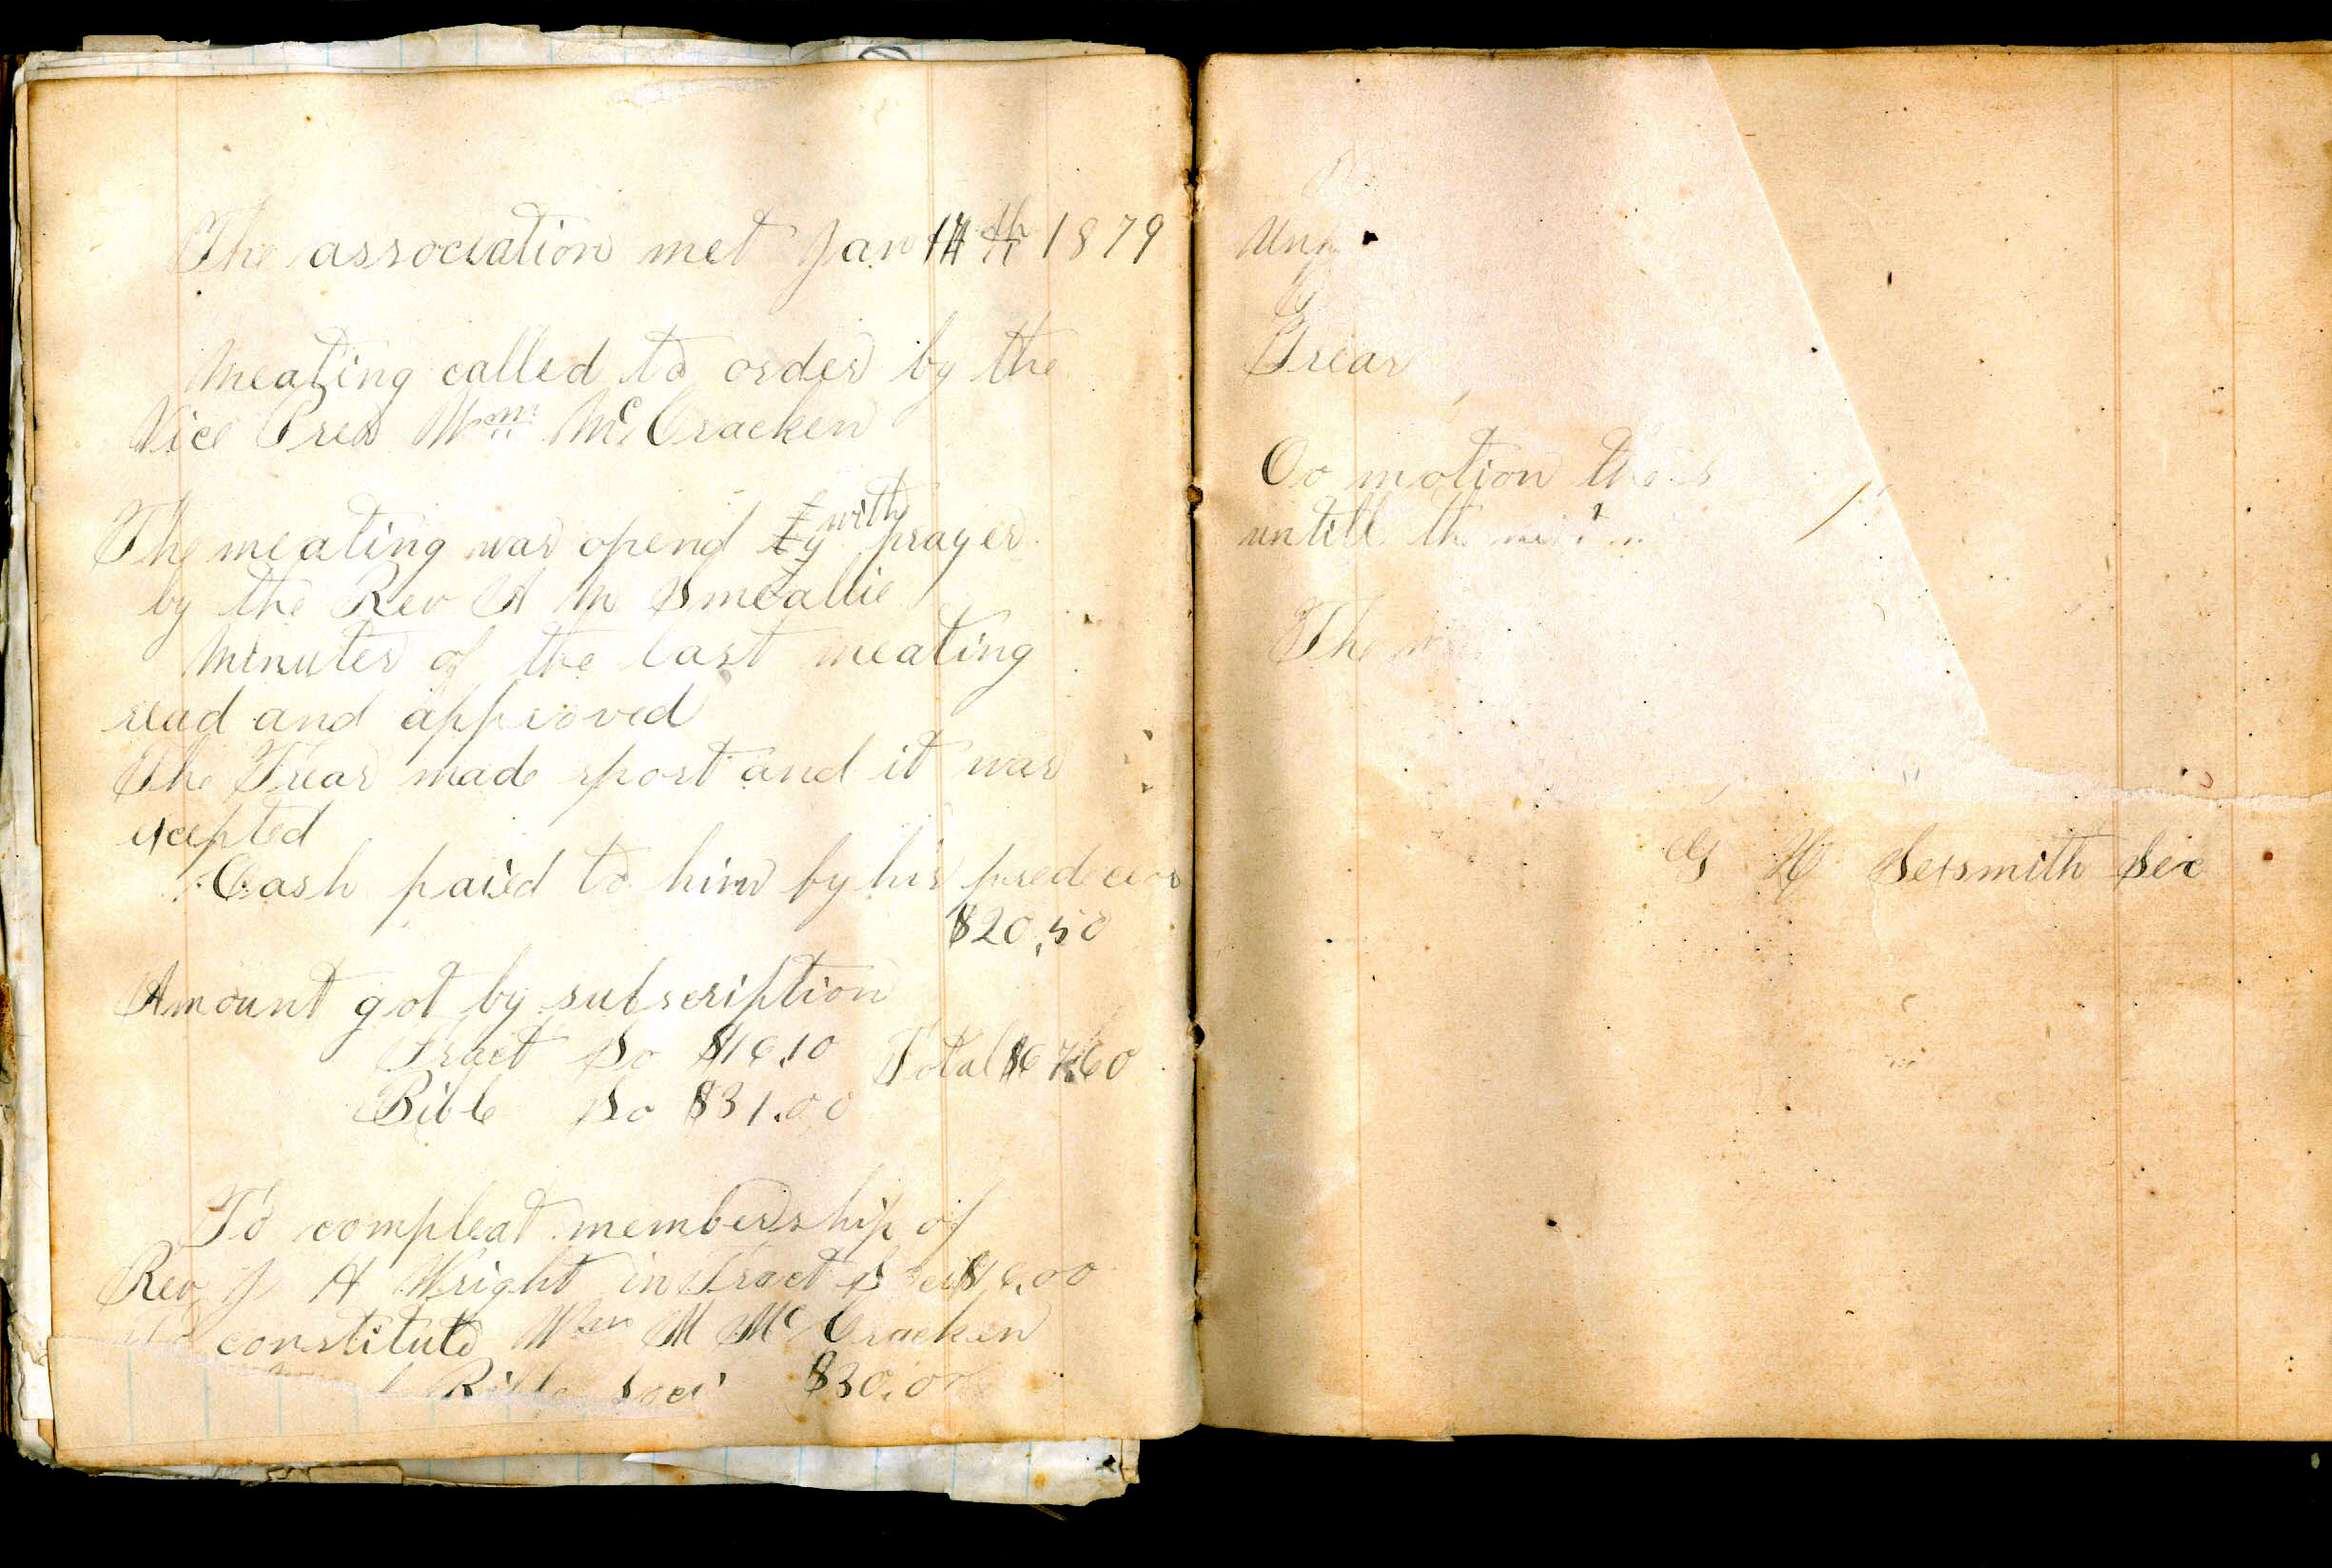 The association met Jan 14th 1879
Meating called to order by the
Vice Pres Wm McCracken
The meating was opend by with prayer
by the Rev A M Smeallie
Minutes of the last meating
read and approved
The Treas made rport and it was
excepted
Cash paied to him by his predecors
$20,50
Amount got by subscription
Tract So $16,10 Total $67.60
Bible So $31.00
To compleat membership of
Rev J H Wright in Tract $16,00
constitute Wm M McCracken
Bible Soci $30,00
Treas
On motion the
untill the
The
G H Sexsmith Sec